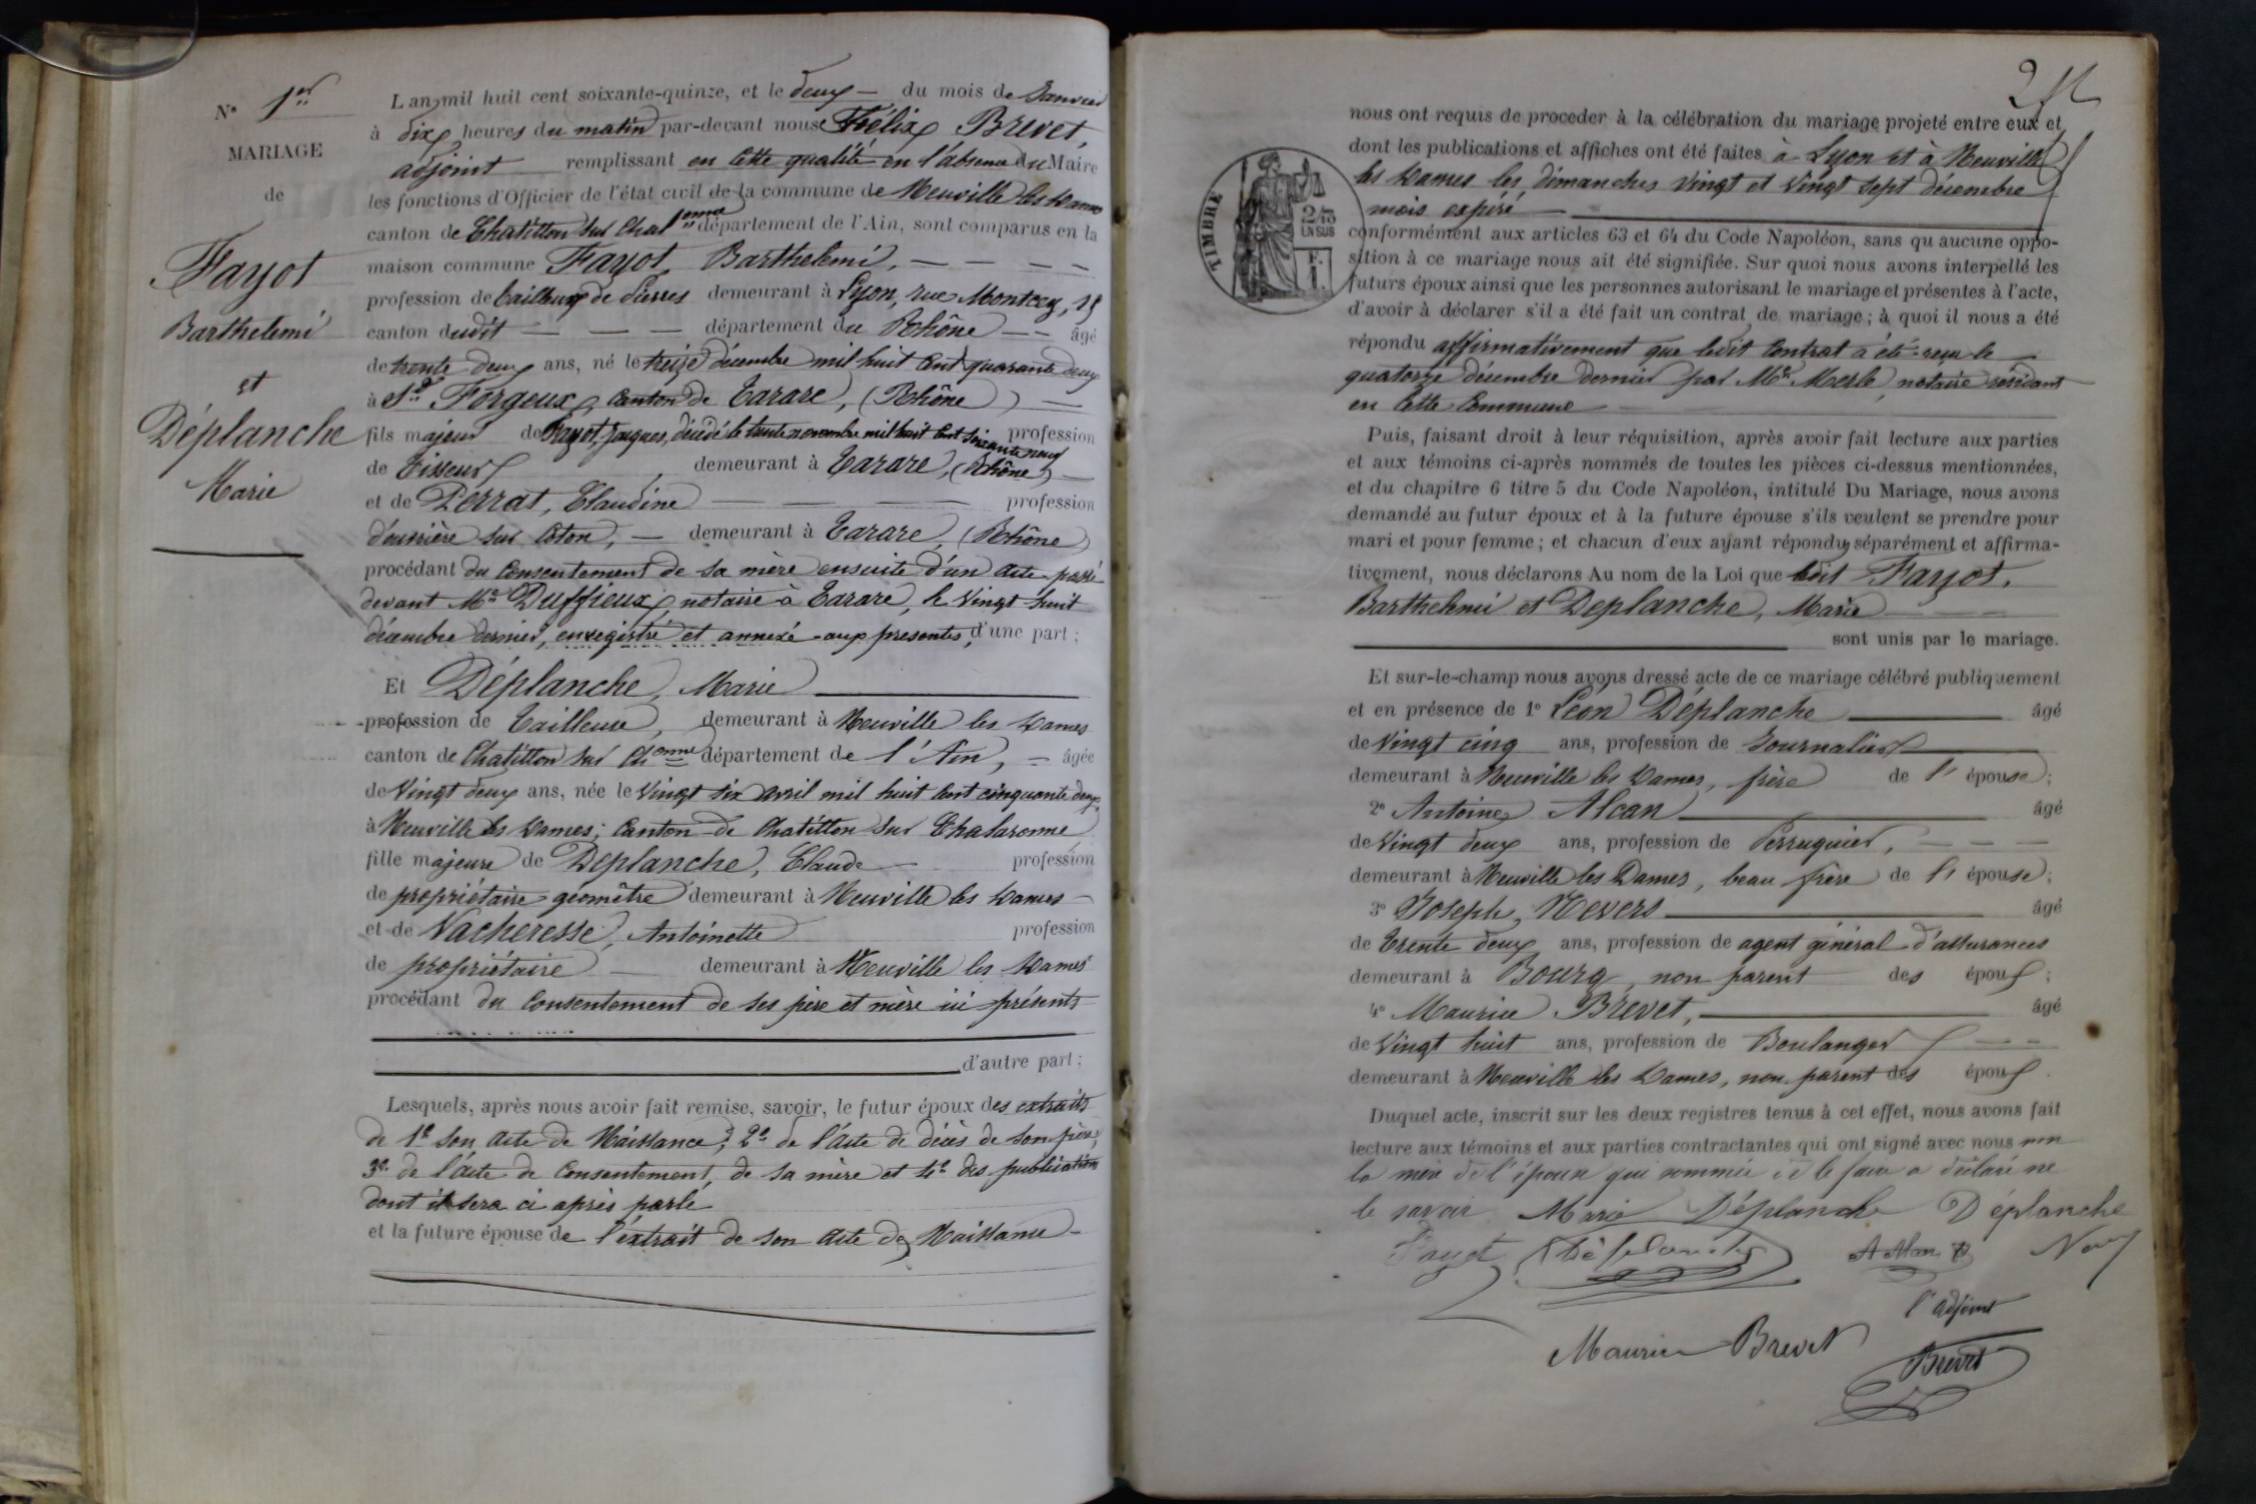 N° 1er
MARIAGE
de
Fayot
Barthelemi
et
Déplanche
Marie
L'an mil huit cent soixante-quinze, et le deux — du mois de Janvier
à dix heures du matin par-devant nous Félix Brevet,
adjoint remplissant en cette qualité en l'absence du Maire
les fonctions d'Officier de l'état civil de la commune de Neuville les Dames
canton de Chatillon sur Chalonne département de l'Ain, sont comparus en la
maison commune Fayot, Barthelemi, — — — —
profession de tailleur de pierres demeurant à Lyon, rue Montecy, 15
canton dudit — — — département du Rhône — — âgé
de trente deux ans, né le treize décembre mil huit cent quarante deux
à St Forgeux, canton de Tarare, (Rhône) —
fils majeur de Fayot, Jacques, décédé le trente novembre mil huit cent soixante neuf profession
de Tisseur demeurant à Tarare, (Rhône) —
et de Perrat, Claudine — — — profession
d'ouvrière sur coton, — demeurant à Tarare, (Rhône)
procédant du consentement de sa mère ensuite d'un acte passé
devant Me Duffieux, notaire à Tarare, le vingt huit
décembre dernier, enregistré et annexé aux presentes, d'une part;
Et Déplanche, Marie
profession de Tailleuse, demeurant à Neuville les Dames
canton de Chatillon sur Chonne département de l'Ain, — âgée
de vingt deux ans, née le vingt six avril mil huit cent cinquante deux,
à Neuville les Dames; canton de Chatillon sur Chalaronne
fille majeure de Déplanche, Claude — profession
de propriétaire géomètre demeurant à Neuville les Dames —
et de Vacheresse, Antoinette profession
de propriétaire — demeurant à Neuville les Dames
procédant du consentement de ses père et mère ici présents
d'autre part;
Lesquels, après nous avoir fait remise, savoir, le futur époux des extraits
de 1° son acte de Naissance; 2° de l'acte de décès de son père;
3° de l'acte de consentement, de sa mère et 4° des publications
dont il sera ci après parlé
et la future épouse de l'extrait de son acte de Naissance —
TIMBRE
2/10
EN SUS
F.
1.
nous ont requis de proceder à la célébration du mariage projeté entre eux et
dont les publications et affiches ont été faites à Lyon et à Neuville
les Dames les dimanches vingt et vingt sept décembre
mois expiré —
conformément aux articles 63 et 64 du Code Napoléon, sans qu'aucune oppo-
sition à ce mariage nous ait été signifiée. Sur quoi nous avons interpellé les
futurs époux ainsi que les personnes autorisant le mariage et présentes à l'acte,
d'avoir à déclarer s'il a été fait un contrat de mariage; à quoi il nous a été
répondu affirmativement que ledit contrat a été reçu le
quatorze décembre dernier par Me Merle, notaire résidant
en cette commune —
Puis, faisant droit à leur réquisition, après avoir fait lecture aux parties
et aux témoins ci-après nommés de toutes les pièces ci-dessus mentionnées,
et du chapitre 6 titre 5 du Code Napoléon, intitulé Du Mariage, nous avons
demandé au futur époux et à la future épouse s'ils veulent se prendre pour
mari et pour femme; et chacun d'eux ayant répondu séparément et affirma-
tivement, nous déclarons Au nom de la Loi que ledit Fayot,
Barthelemi et Deplanche, Marie
sont unis par le mariage.
Et sur-le-champ nous avons dressé acte de ce mariage célébré publiquement
et en présence de 1° Léon Déplanche âgé
de vingt cinq ans, profession de Journalier
demeurant à Neuville les Dames, frère de l' épouse;
2° Antoine Alcan âgé
de vingt deux ans, profession de Perruquier, — — —
demeurant à Neuville les Dames, beau frère de l' épouse;
3° Joseph Nevers âgé
de trente deux ans, profession de agent général d'assurances
demeurant à Bourg, non parent des époux;
4° Maurice Brevet, âgé
de vingt huit ans, profession de Boulanger — —
demeurant à Neuville les Dames, non parent des époux.
Duquel acte, inscrit sur les deux registres tenus à cet effet, nous avons fait
lecture aux témoins et aux parties contractantes qui ont signé avec nous non
la mère de l'épouse qui sommée de le faire a déclaré ne
le savoir Marie Déplanche Déplanche
Fayot Déplanche
l'adjoint
Maurice Brevet Brevet